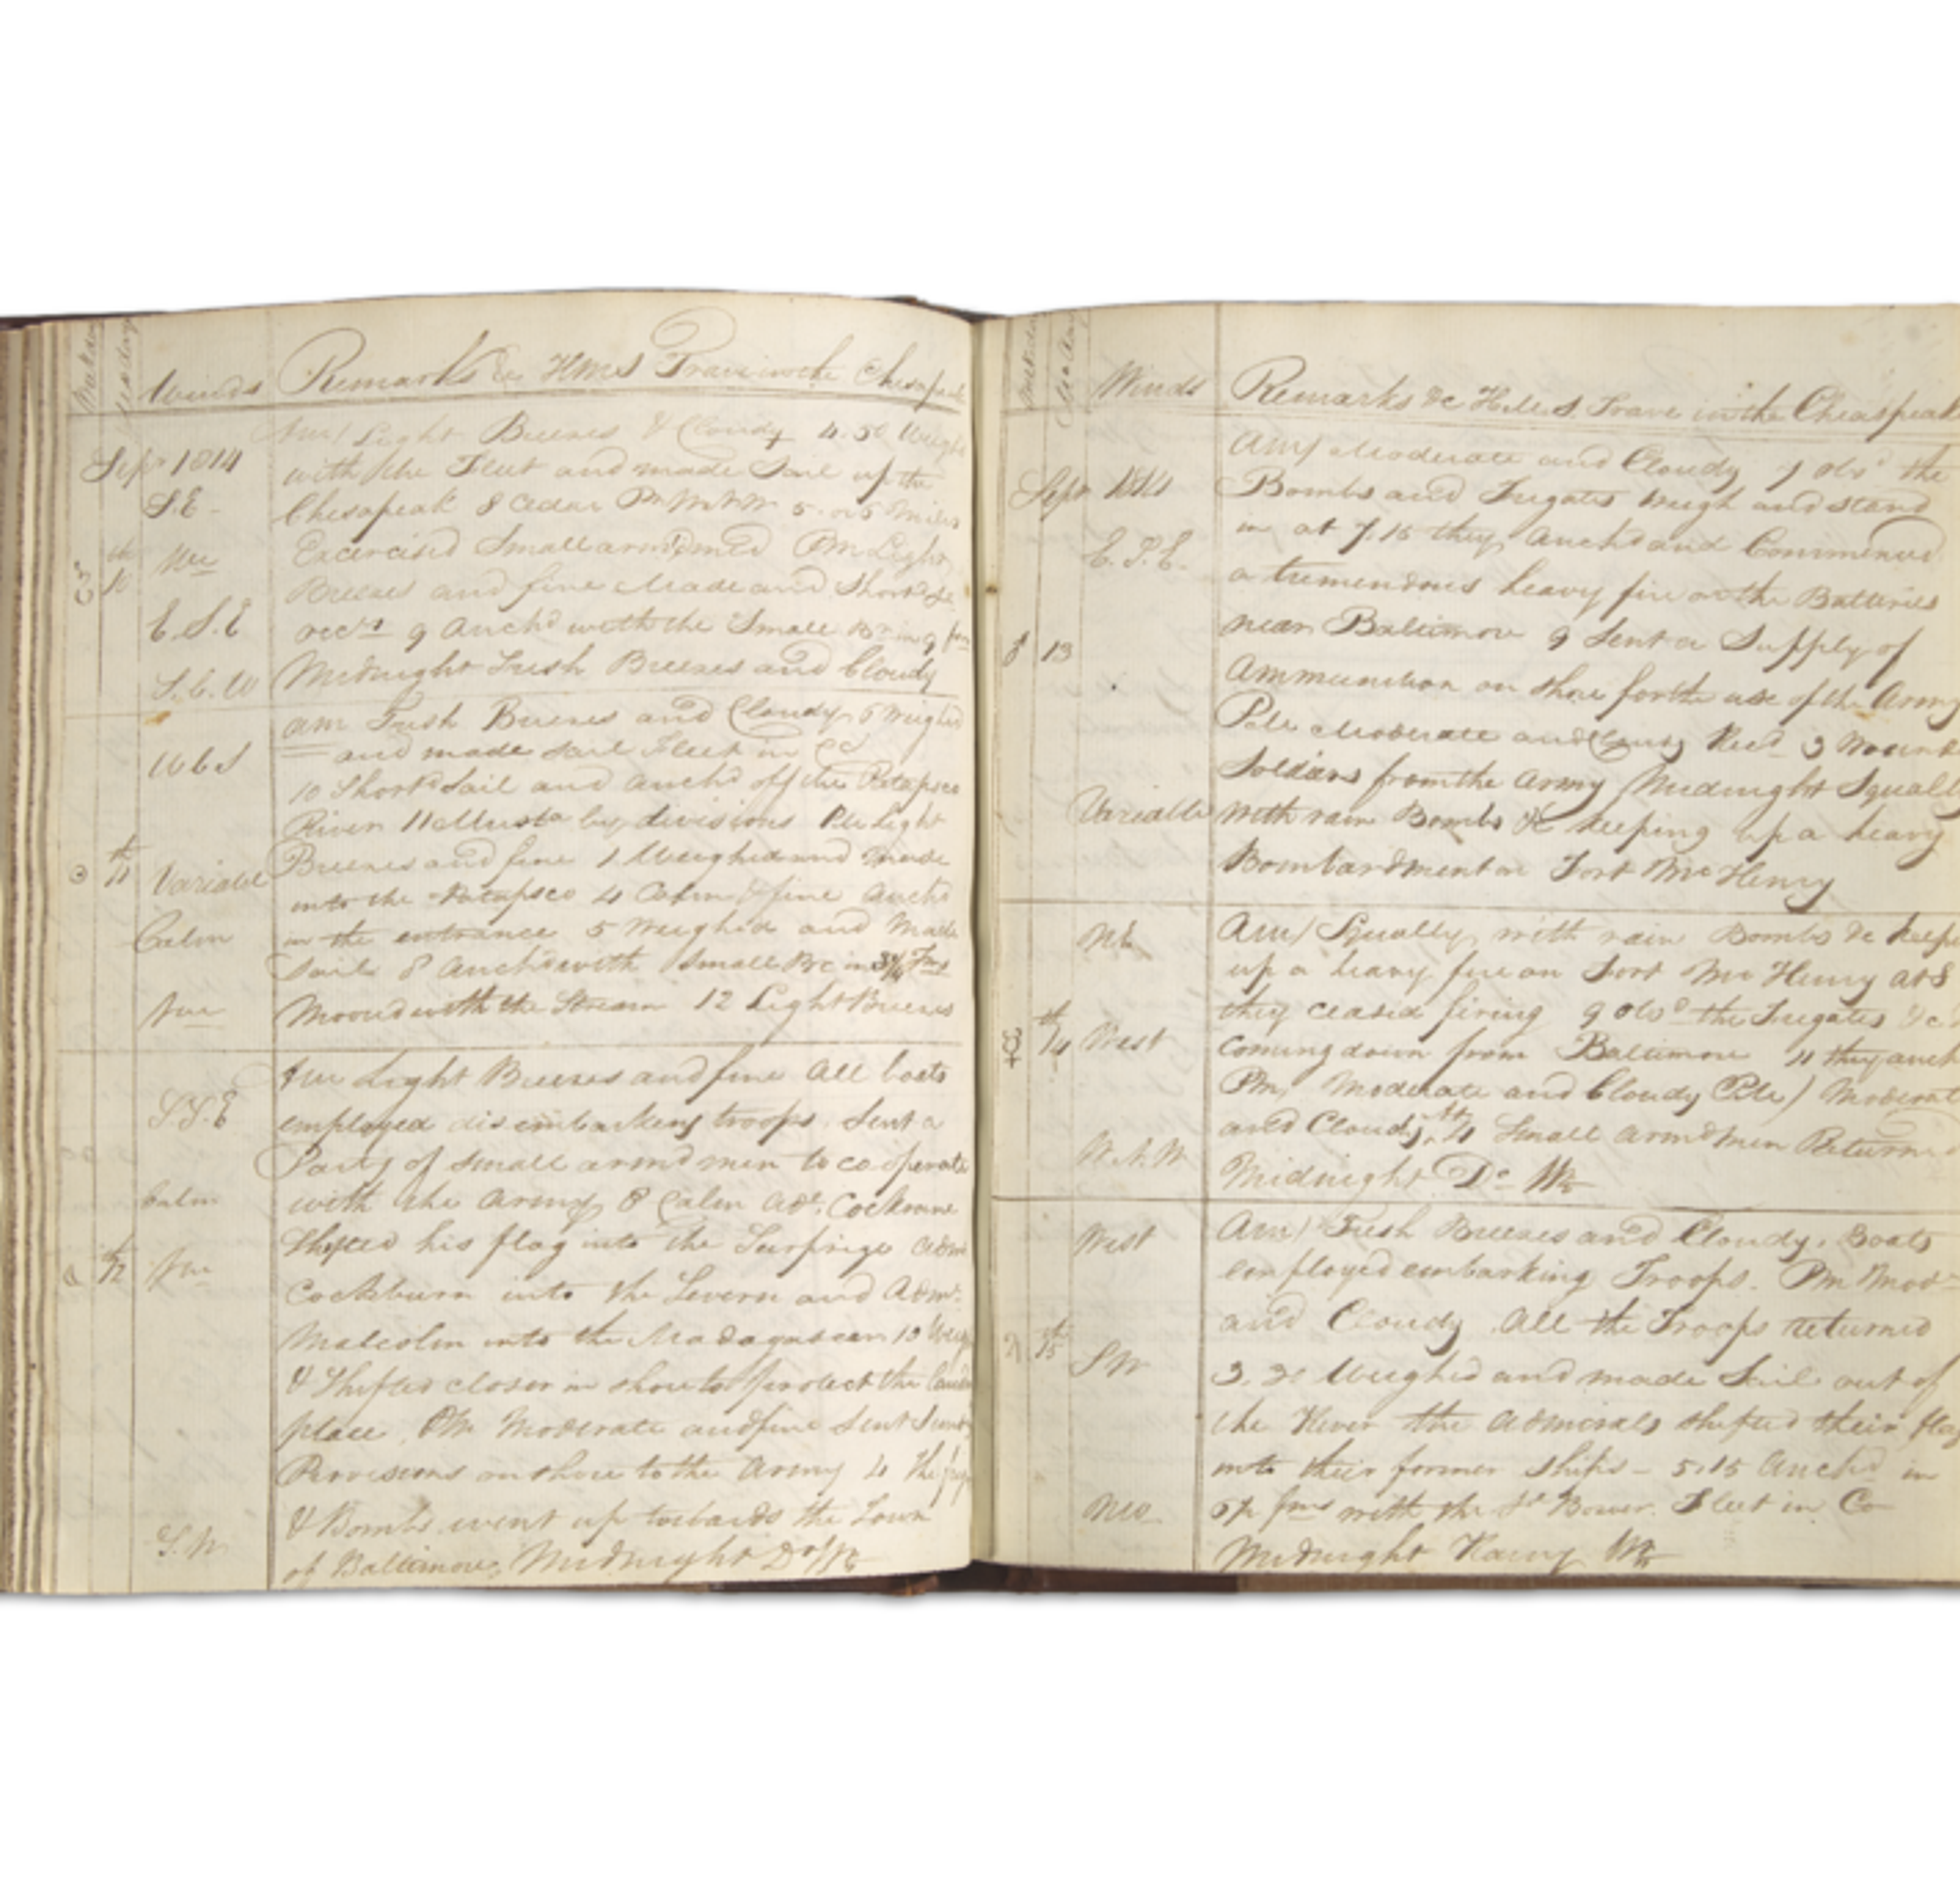 Winds Remarks &c HMS Trave in the Chesapeak
Sepr 1814
Am/ Light Breezes & Cloudy 4.50 Weighd
with the Fleet and made Sail up the
S.E.
Chesapeak 8 Cedar Pt 5 or 6 Miles
Excercised Small arm'd men Pm Light
th
10
Breezes and fine Made and Shortd Sl
E.S.E
occly 9 Anchd with the Small Br in 9 fm
S.b.W
Midnight Fresh Breezes and Cloudy
am Fresh Breezes and Cloudy 6 Weighed
WbS
and made Sail Fleet in Co
10 Shortd Sail and Anchd off the Patapsco
River 11 Musta by divisions Pm Light
th
11
Variable
Breezes and fine 1 Weighed and made
into the Patapsco 4 Calm & fine Anchd
Calm
in the entrance 5 Weighed and Made
Sail 8 Anchd with Small Br in 3¾ Fms
Moored with the Stream 12 Light Breezes
Am Light Breezes and fine All boats
S.S.E
employed disembarking troops. Sent a
Party of Small armd men to cooperate
Calm
with the Army 8 Calm Adl. Cockrane
th
12
Shifted his flag into the Surprize Adm
Cockburn into the Severn and Adml.
Malcolm into the Madagascar 10 Weigd
& Shifted closer in shore to protect the landg
place. Pm Moderate and fine Sent
Provisions on shore to the Army 4 The frigs
& Bombs went up towards the Town
S.W.
of Baltimore, Midnight Do Wr
Winds Remarks &c H.M.S. Trave in the Chesapeak
Sepr 1814
Am/ Moderate and Cloudy 7 Obsd the
Bombs and Frigates weigh and stand
E.S.E.
in at 7.15 they Anchd and Commenced
a tremendous heavy fire on the Batteries
13
near Baltimore 9 Sent a Supply of
Ammunition on shore for the use of the Army
Moderate and Cloudy Recd 3 Wound
Soldiers from the Army Midnight Squally
Variable
with rain Bombs &c keeping up a heavy
Bombardment on Fort McHenry
NE
Am/ Squally with rain Bombs &c keep
up a heavy fire on Fort McHenry at 8
th
14
West
they ceased firing 9 Obsd the Frigates &c
coming down from Baltimore 11 they anch
Pm/ Moderate and Cloudy Moderat
and Cloudy, Small armd men Returnd
Midnight Do Wr
West
Am/ Fresh Breezes and Cloudy. Boats
employed embarking Troops. Pm Mod
and Cloudy All the Troops returned
th
15
SW
3.30 Weighed and made Sail out of
the River the Admirals shifted their flag
into their former ships – 5.15 Anchd in
fms with the Bower. Fleet in Co
Midnight Rainy Wr